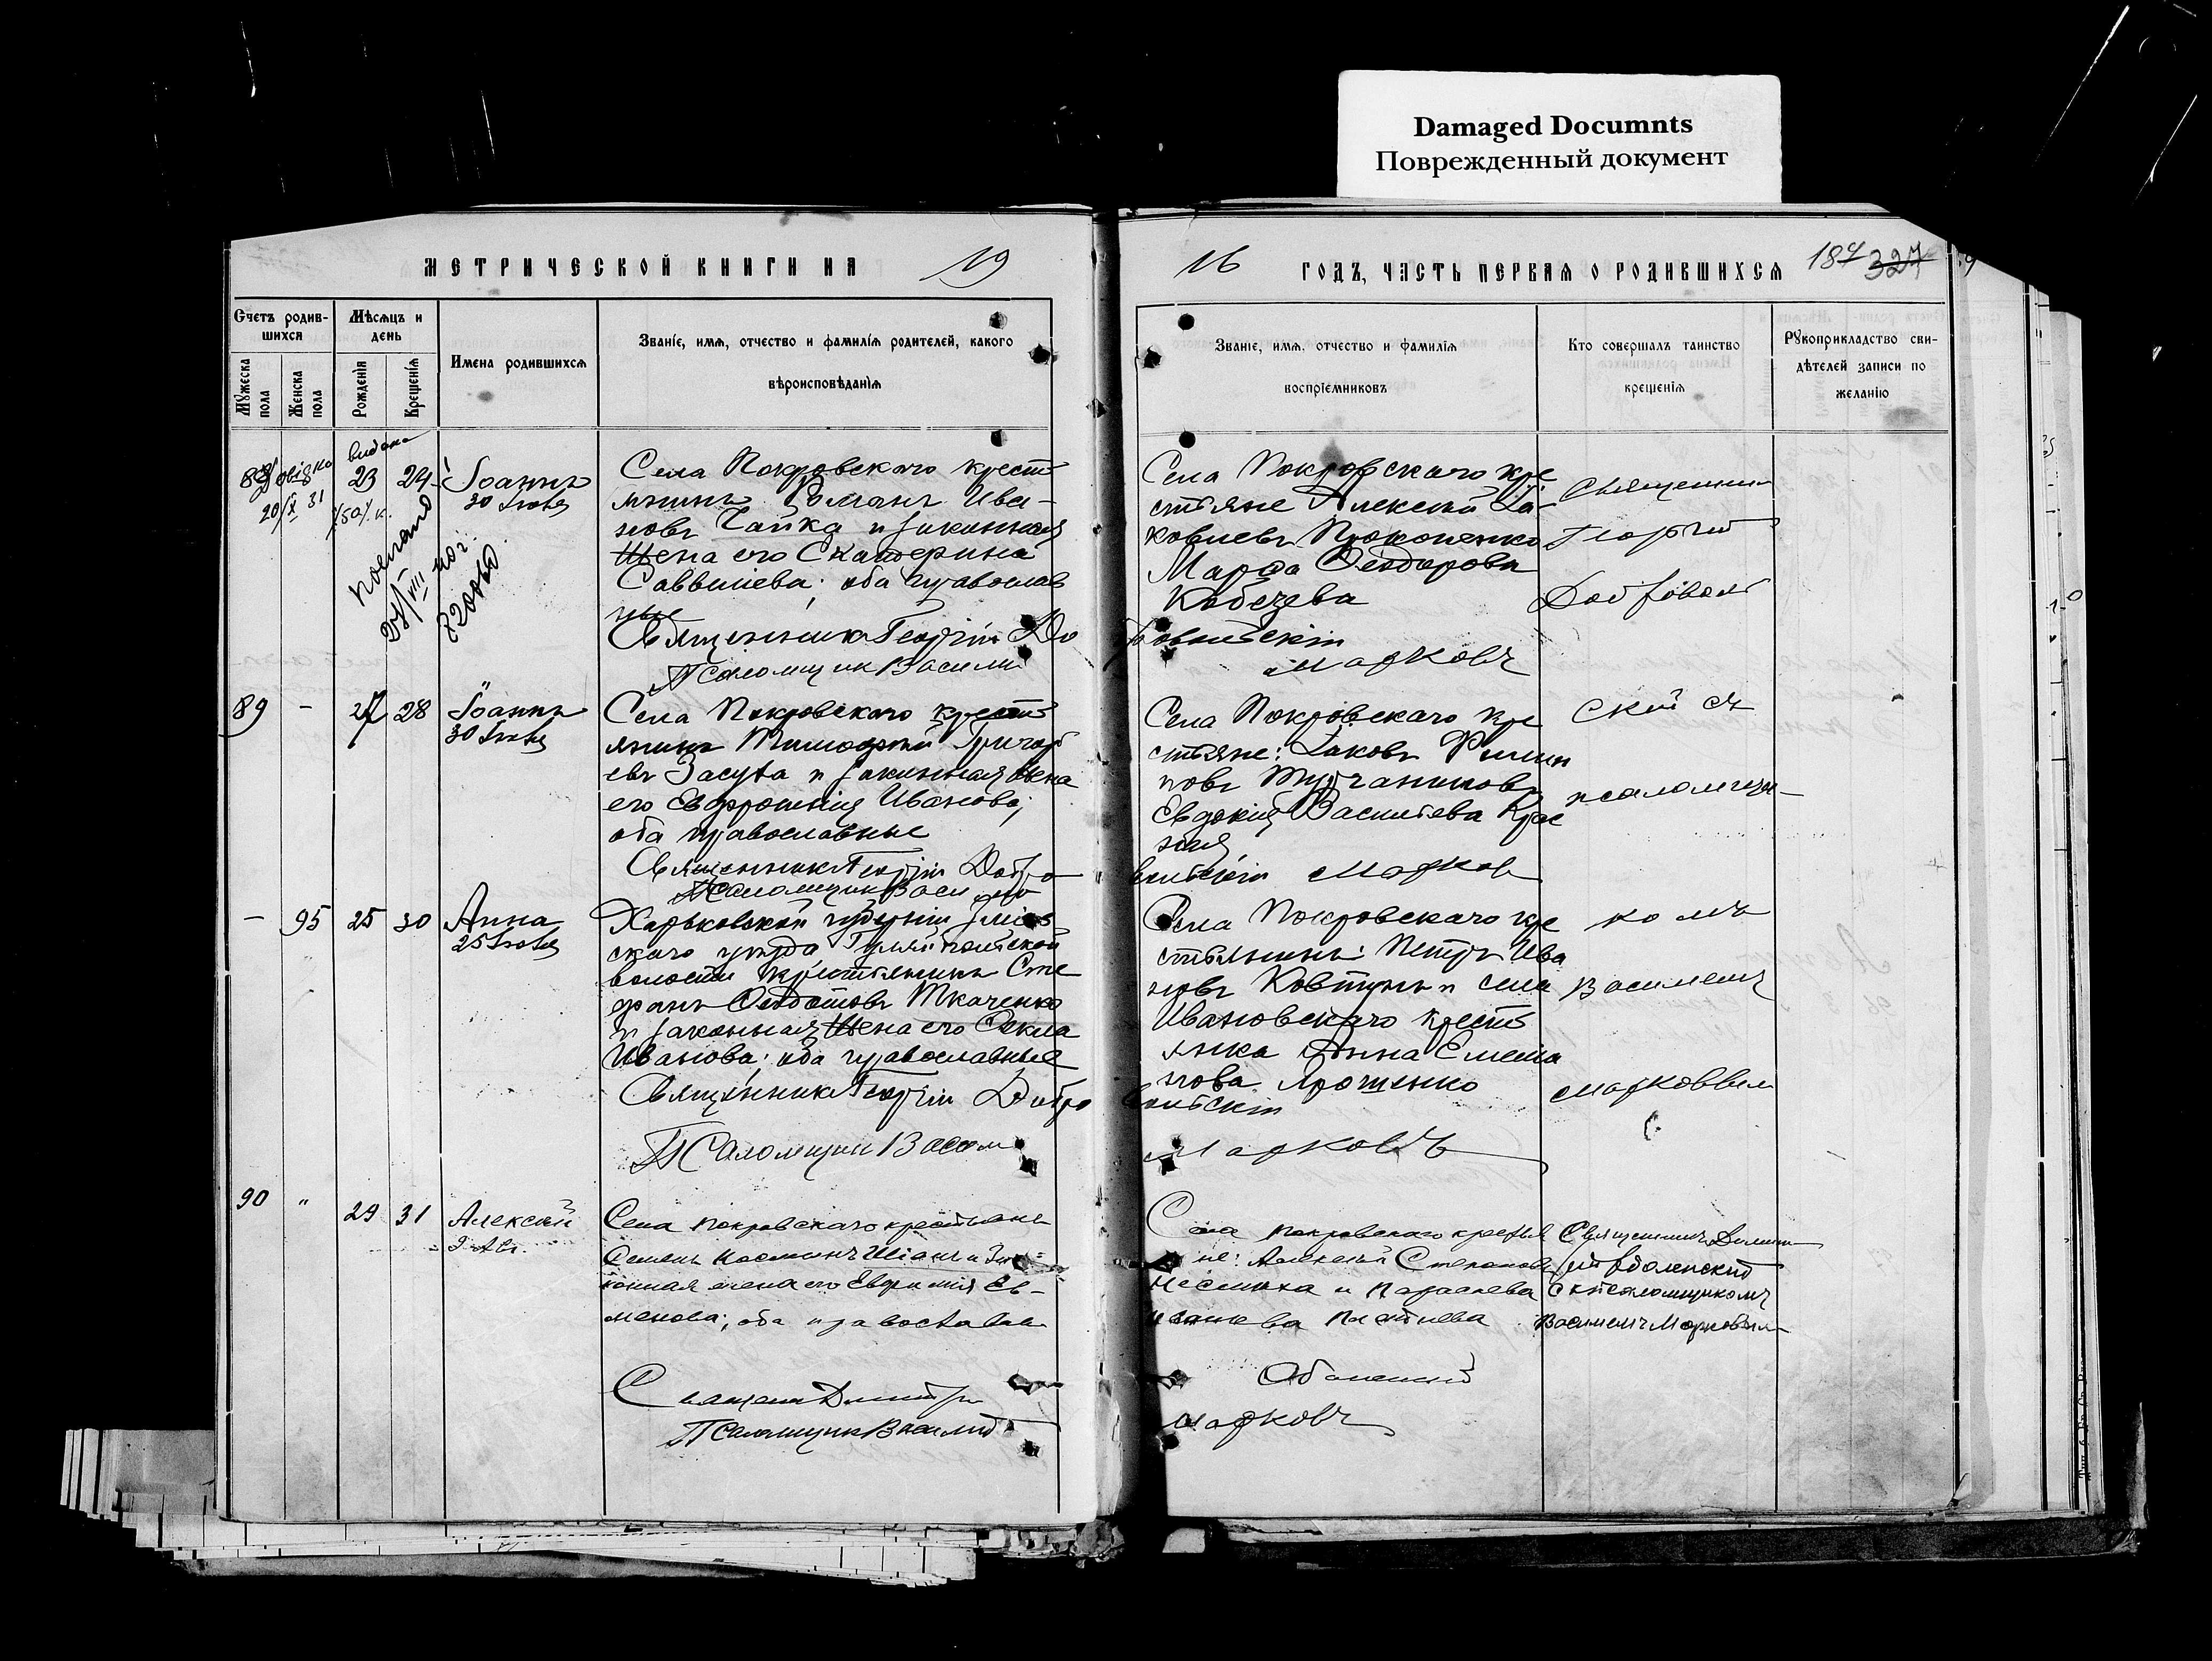 Damaged Documnts
Поврежденный документ
МЕТРИЧЕСКОЙ КНИГИ НА 19
16 ГОДЪ, ЧАСТЬ ПЕРВАЯ О РОДИВШИХСЯ 187 327
Счетъ родив-
шихся
Мужеска
пола
Женска
пола
Мѣсяцъ и
день
Рожденія
Крещенія
Имена родившихся
Званіе, имя, отчество и фамилія родителей, какого
вѣроисповѣданія
Званіе, имя, отчество и фамилія
воспріемниковъ
Кто совершалъ таинство
крещенія
Рукоприкладство сви-
дѣтелей записи по
желанію
88 23 24 Іоаннъ
30 Іюля
20/X 31
Села Покровскаго крестъ
янинъ Романъ Ива-
новъ Чайка и законная
жена его Екатерина
Саввишева; оба православ
ные
Священникъ Георгій До
Псаломщик Василій
Села Покровскаго кре
стьяне Алексѣй Іа-
ковлевъ Прокопенко
Марѳа Ѳеодорова
бровольскій
Марковъ
Священник
Георгій
Доброволь
89 - 27 28 Іоаннъ
30 Іюля
Села Покровскаго кресть
янинъ Тимофей Григорь
евъ Засуха и законная жена
его Евфросинія Иванова;
оба православные
Священникъ Георгій Добро
Псаломщик Васи лій
Села Покровскаго кре
стьяне: Іаковъ Филип
повъ
Евдокія Васильева Крас
ная
вольскій Марков
ский съ
псаломщи-
- 95 25 30 Анна
25 Іюля
Харьковской губерніи Зміев
скаго уѣзда Гуляйпольской
волости крестьянинъ Сте
фанъ Ѳедотовъ Ткаченко
и законная жена его Ѳекла
Иванова; оба православные
Священникъ Георгій Добро
Псаломщик Васили
Села Покровскаго кре
стьянинъ: Петръ Ива
новъ Ковтунъ и села
Ивановскаго кресть
янка Анна Емелія
нова Ярошенко
вольскій
Марковъ
комъ
Василіемъ
Марковым
90 " 29 31 Алексѣй
9 Авг.
Села Покровскаго крестьянинъ
Семенъ
конная жена его Евфимія Ев-
менова; оба православн
Священ Дмитрі
Псаломщик Василій
Села Покровскаго крестья
не: Алексѣй Степановъ
и Параскева
Оболенскій
Марковъ
Священникъ Димит
рій Оболенскій
съ псаломщикомъ
Василіемъ Марковым